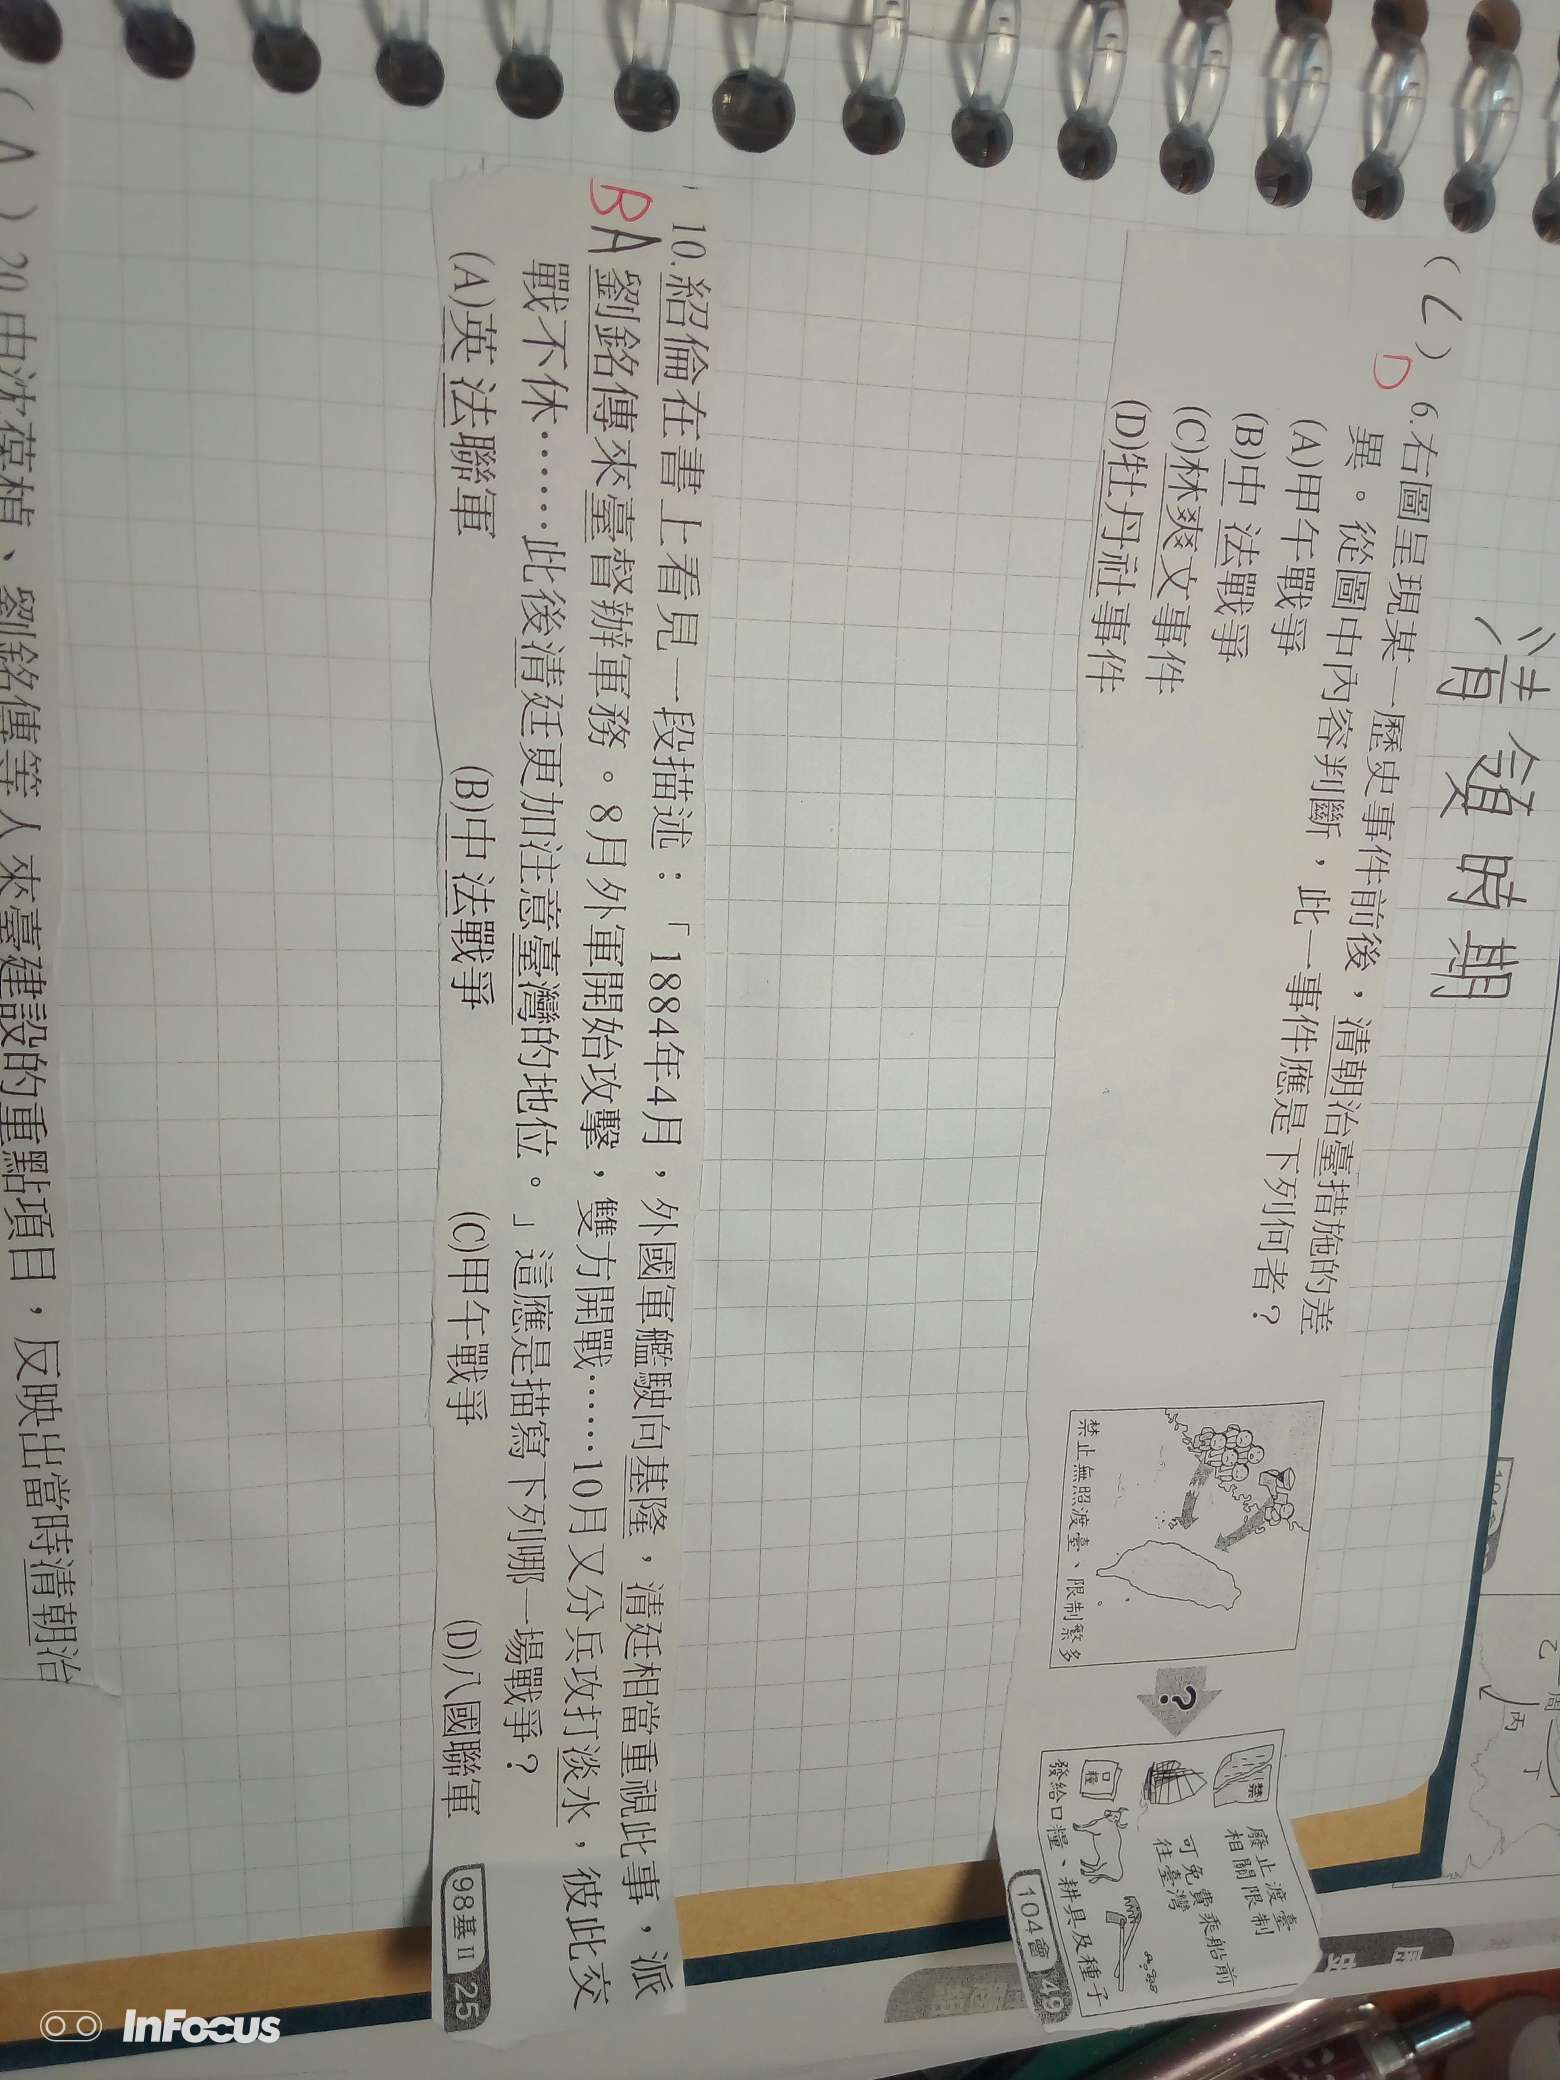 清領時期
(C) 6.右圖呈現某一歷史事件前後，清朝治臺措施的差
D 異。從圖中內容判斷，此一事件應是下列何者？
(A)甲午戰爭
(B)中法戰爭
(C)林爽文事件
(D)牡丹社事件
禁止無照渡臺、限制繁多
?
禁
廢止渡臺
相關限制
可免費乘船前
往臺灣
口糧
發給口糧、耕具及種子
104會 49
10.紹倫在書上看見一段描述：「1884年4月，外國軍艦駛向基隆，清廷相當重視此事，派
BA 劉銘傳來臺督辦軍務。8月外軍開始攻擊，雙方開戰……10月又分兵攻打淡水，彼此交
戰不休……此後清廷更加注意臺灣的地位。」這應是描寫下列哪一場戰爭？
(A)英法聯軍 (B)中法戰爭 (C)甲午戰爭 (D)八國聯軍
98基II 25
(A) 20.由沈葆楨、劉銘傳等人來臺建設的重點項目，反映出當時清朝治
乙
丙
丁
InFocus